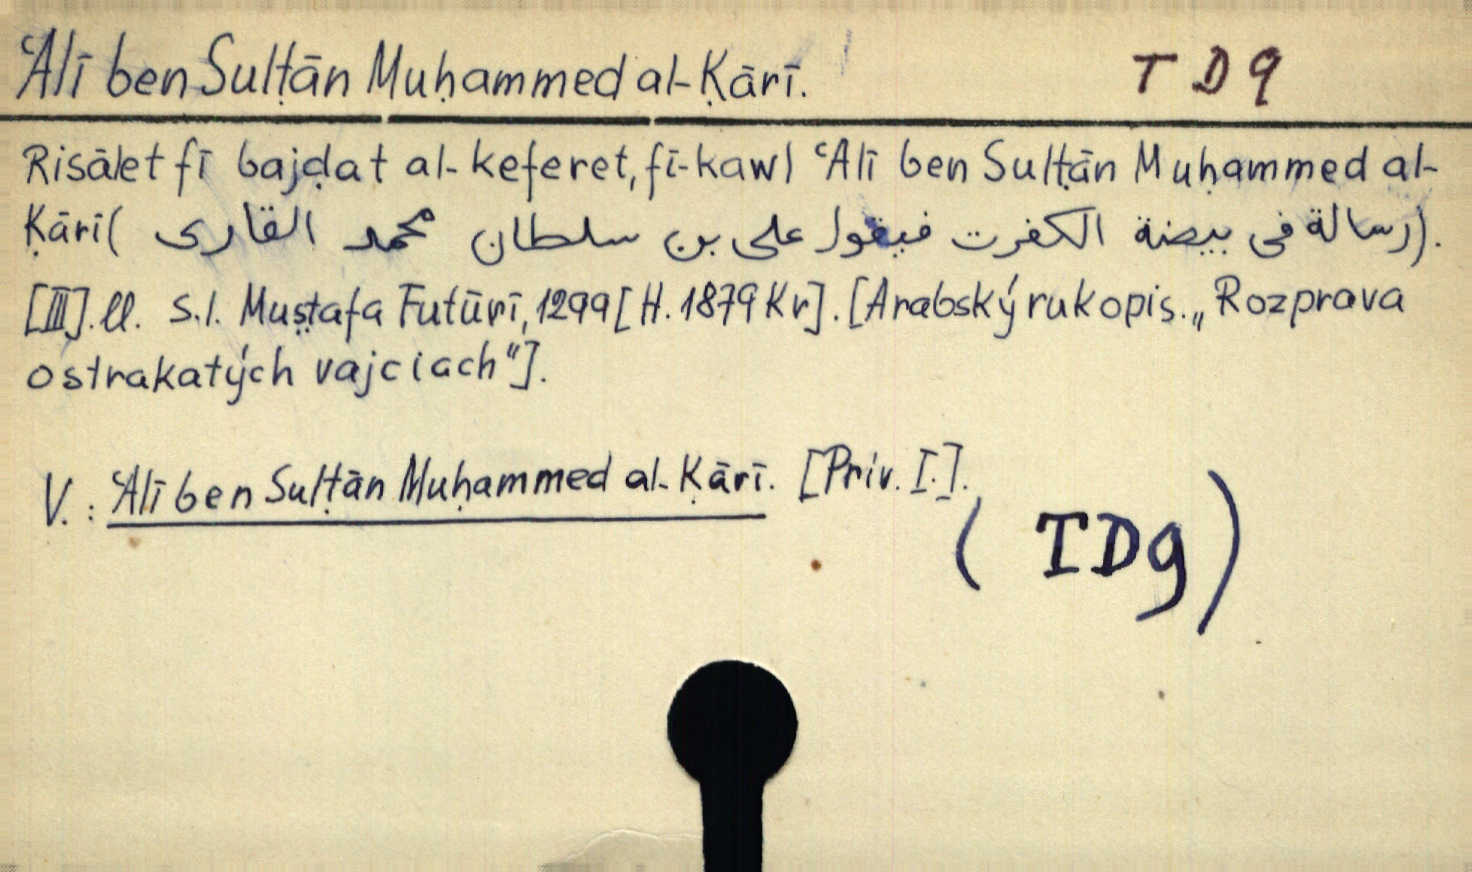 ʿAlī ben Sulṭān Muḥammed al-Ḳārī. T D 9
Risālet fī bajḍat al-keferet, fī-kawl ʿAlī ben Sulṭān Muḥammed al-
Ḳārī (رسالة فى بيضة الكفرت فيقول على بن سلطان محمد القارى).
[III]. ll. s.l. Muṣṭafa Futūrī, 1299 [H. 1879 Kr]. [Arabský rukopis. „Rozprava
o strakatých vajciach"].
V.: ʿAlī ben Sulṭān Muḥammed al-Ḳārī. [Priv. I.].
( TD9 )